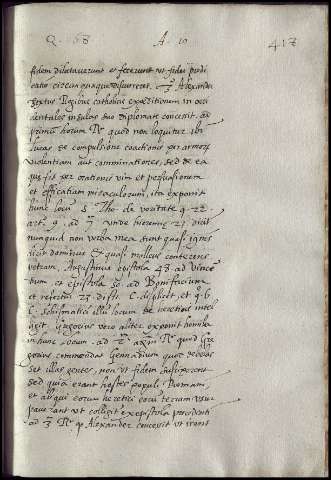 Q. 68 A. 10 417
fidem dilataverunt et fecerunt ut fides predi
catio circunquaque discurreret. 3º Alexander
sextus Regibus catholicis expeditionem in occi
dentales insulas suo diplomate concessit. ad
primum horum Rº quod non loquitur ibi
lucas de compulsione coactionis per armorum
violentiam aut comminationes, sed de ea
que fit per orationis vim et persuasionem
et efficatiam miraculorum, ita exponit
hunc locum S. Tho. de veritate q. 22.
art. 9. ad 7. unde hieremie 23 dicit
nunquid non verba mea sunt quasi ignis
dicit dominus et quasi malleus conterens
petram. Augustinus epistola 48. ad Vincen
tium et epistola 50. ad Bonifacium
et refertur 23. dist. C. displicet, et q. 6.
C. schismatici illum locum de hereticis intel
ligit. Gregorius vero aliter exponit homilia
in hunc locum. ad 2. Rº quod Gre
gorius commendat Gennadium quod debellas
set illas gentes, non ut fidem susciperent
sed quia erant hostes populi Romani,
et aliqui eorum heretici erant terram usur
paverant ut colligit ex epistola precedenti
ad 3. Rº q. Alexander concessit ut irent